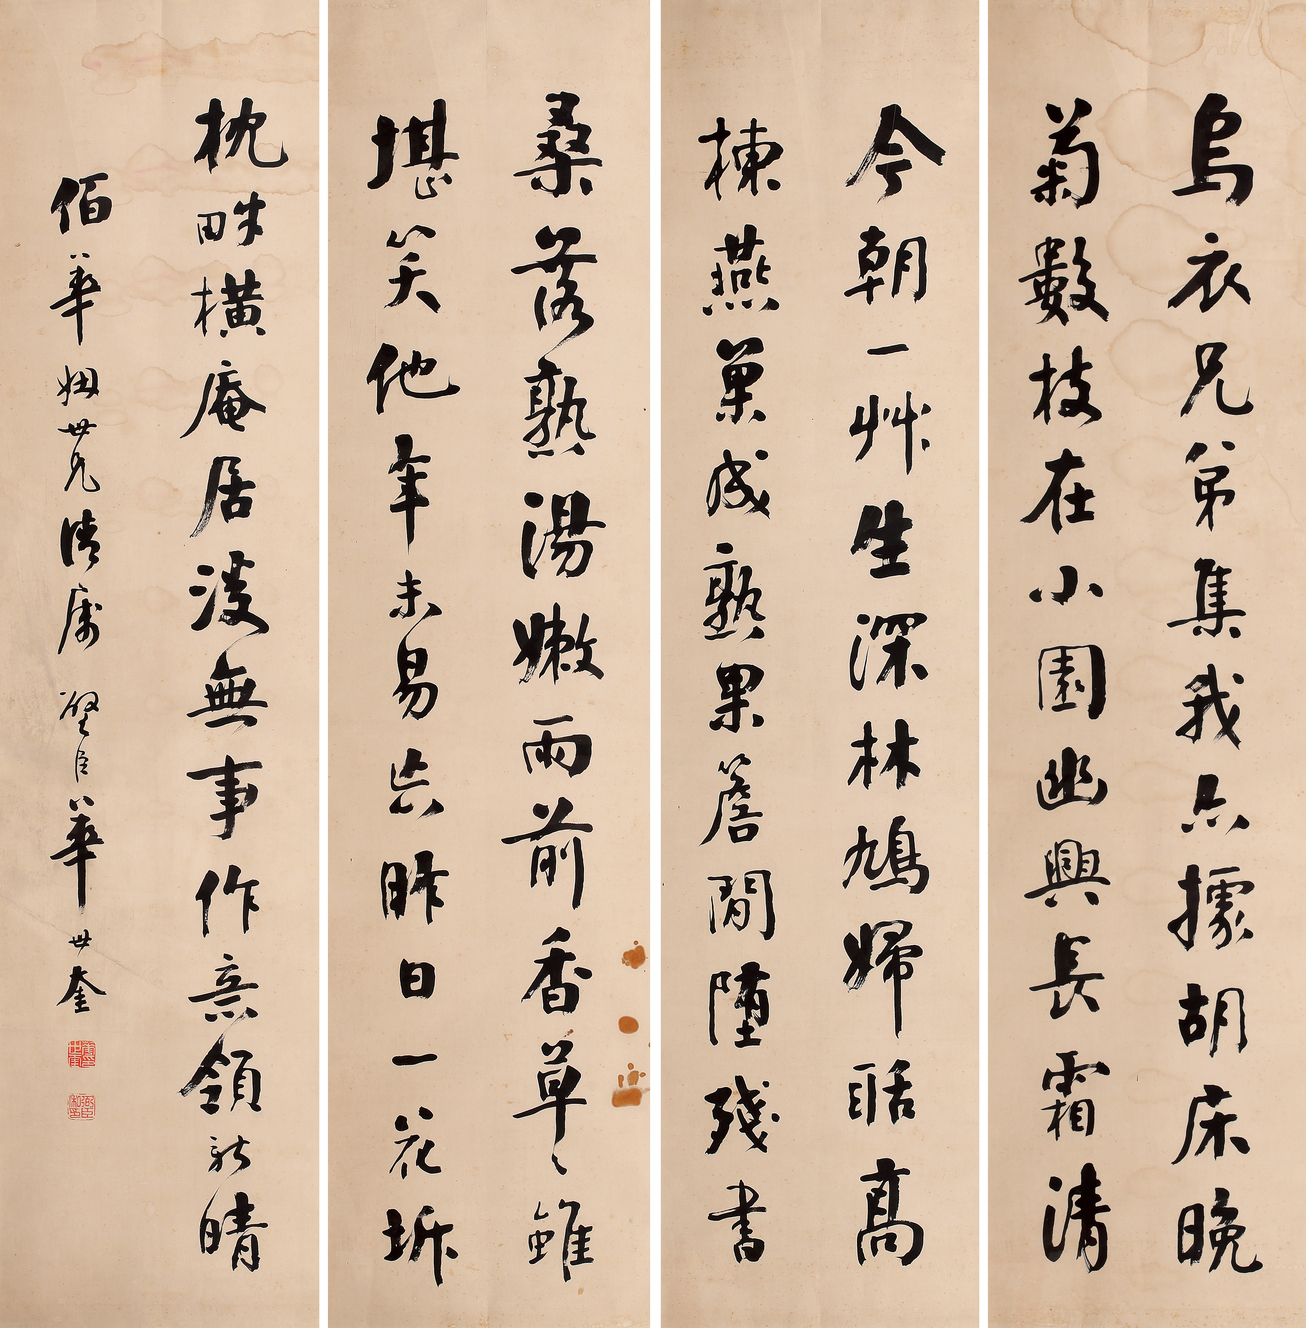 烏衣兄弟集我亦據胡床晚
菊數枝在小園幽興長霜清
今朝一艸生深林鳩婦聒高
棟燕巢成熟果簷間墮殘書
桑落熟湯嫩雨前香草〻雖
堪笑他年未易忘昨日一花坼
枕畔橫庵居無事作意領新晴
佰華姻世兄清屬 臣華世奎